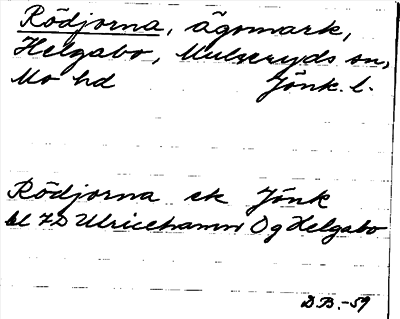 Rödjorna, ägomark,
Helgabo, Mulseryds sn,
Mo hd Jönk. l.
Rödjorna ek Jönk
bl 7D Ulricehamn Og Helgabo
D.B.-59